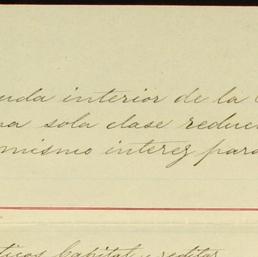 uda interior de la
sola clase reduci
mismo interez para
ticos Capital y reditos